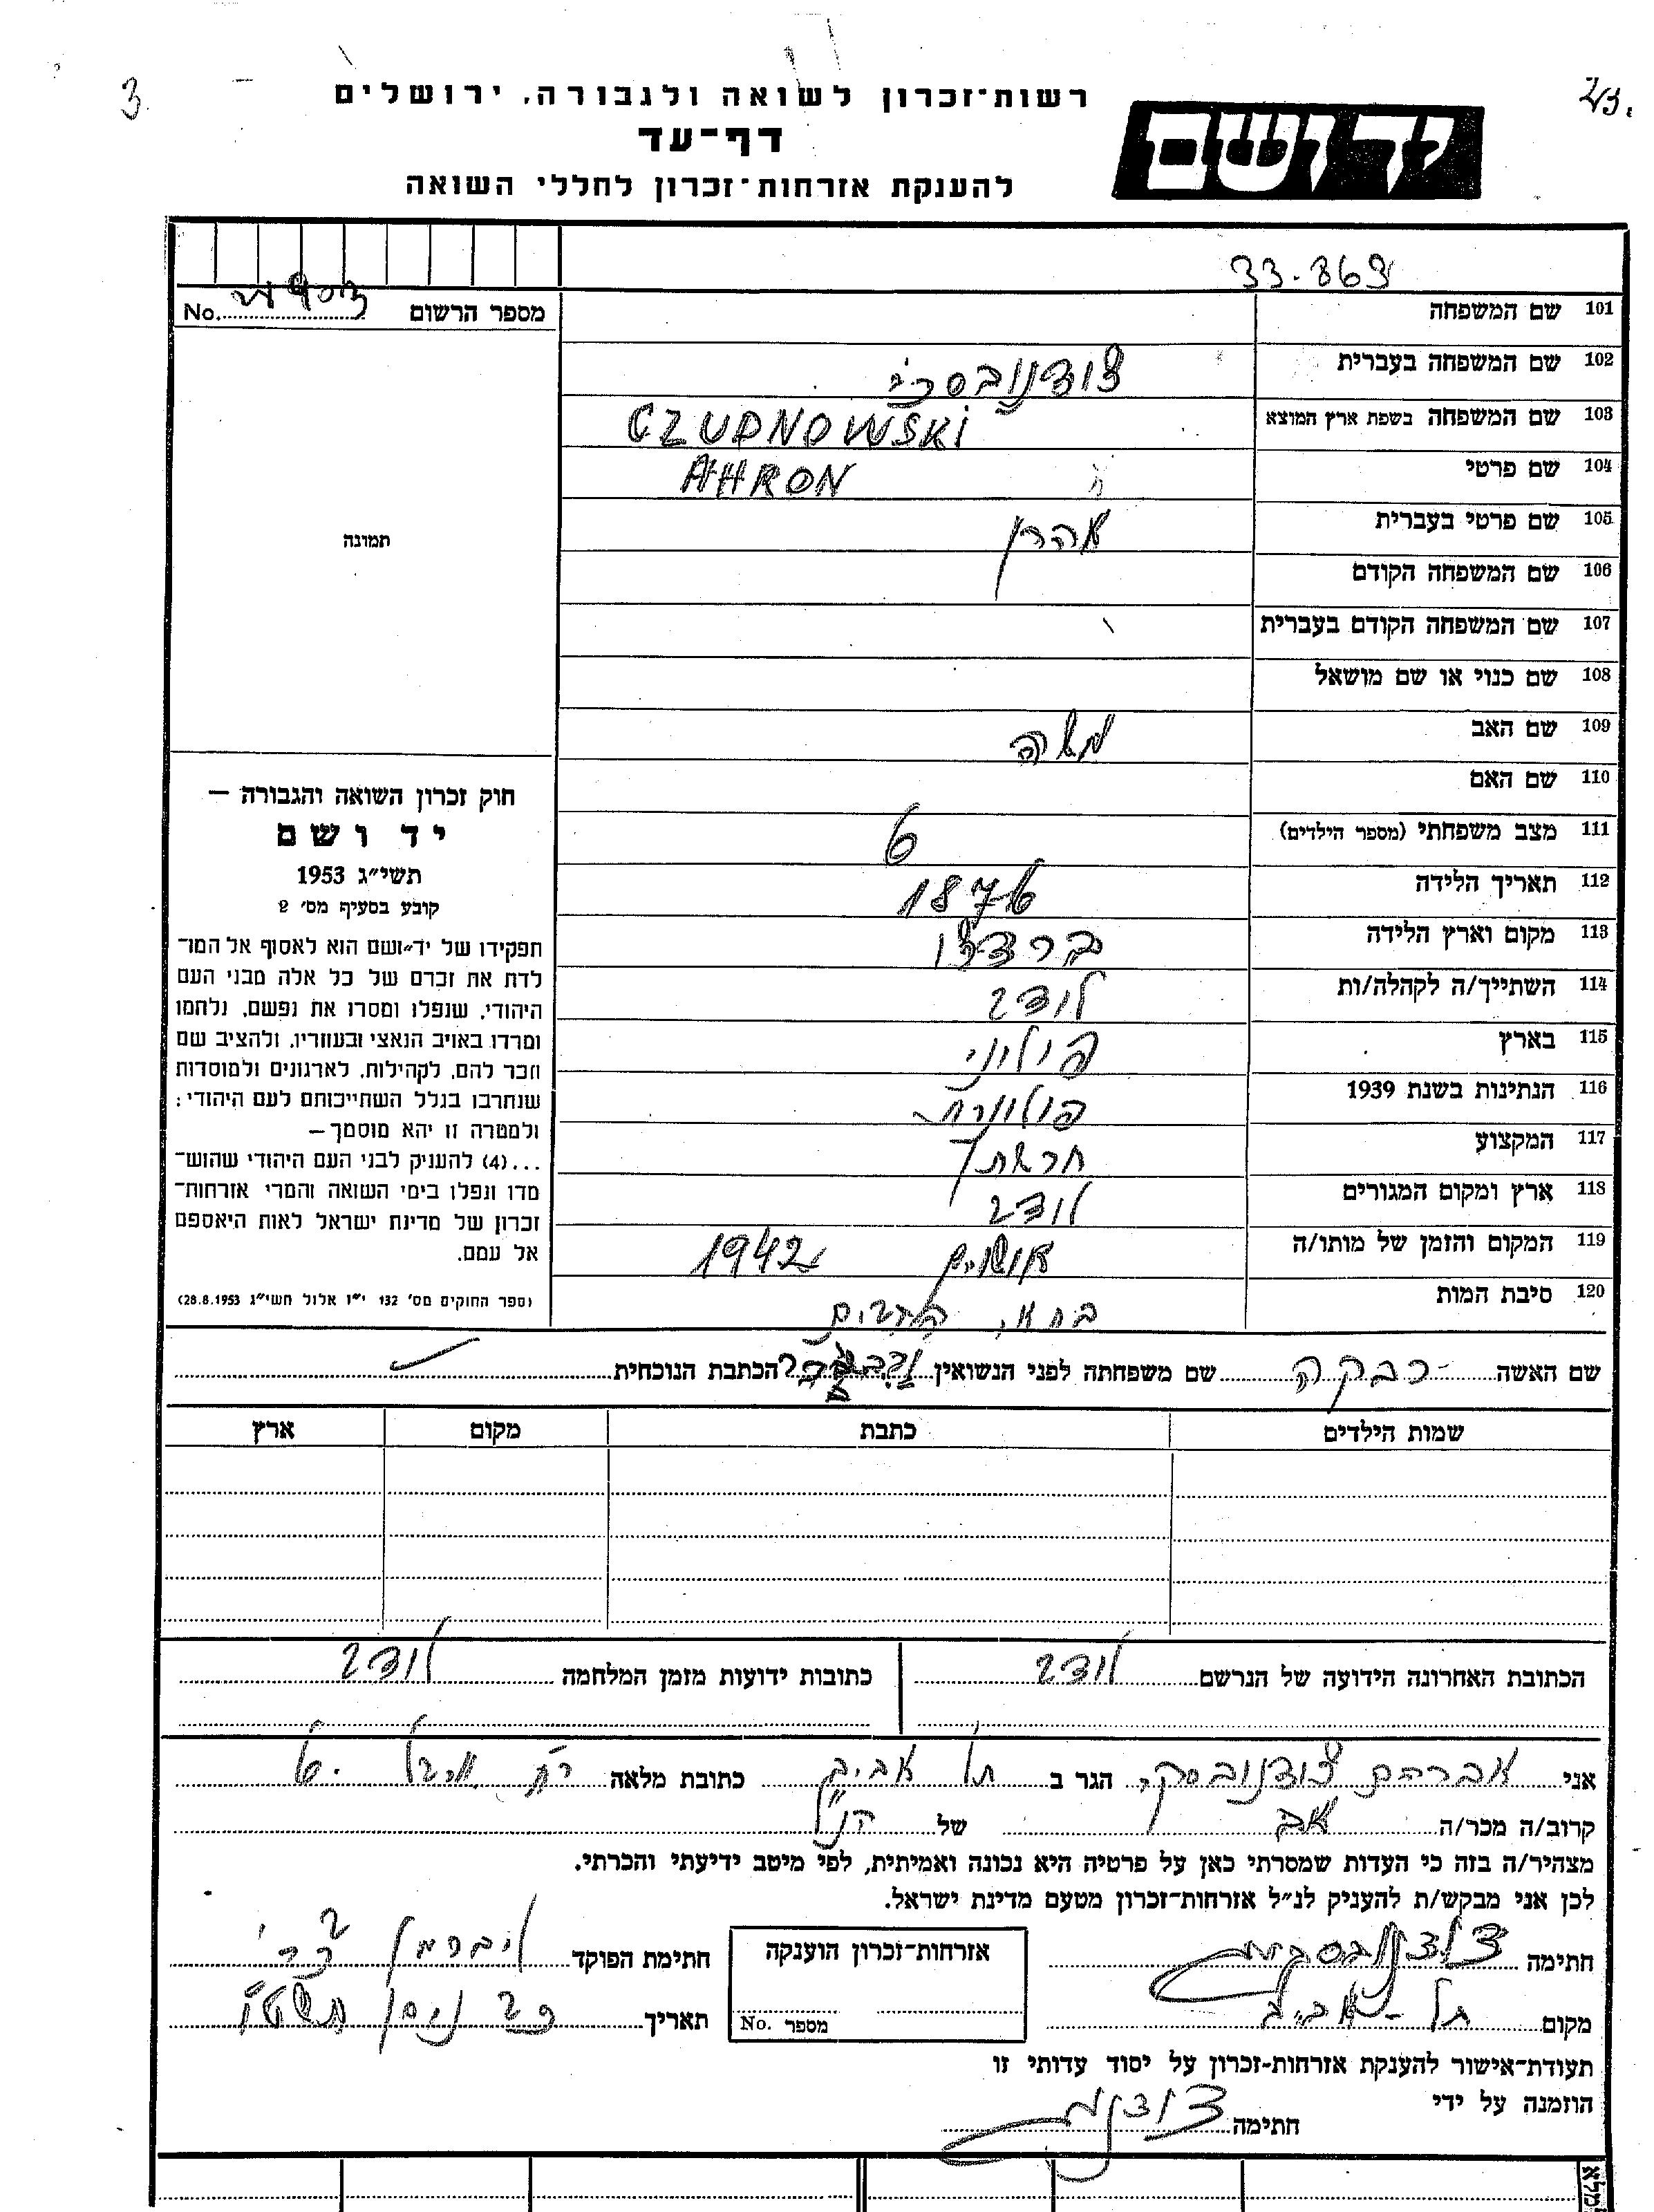 רשות־זכרון לשואה ולגבורה, ירושלים
דף־עד
להענקת אזרחות־זכרון לחללי השואה
יד ושם
3
33.863
מספר הרשום No.
101 שם המשפחה
102 שם המשפחה בעברית צודנובסקי
103 שם המשפחה בשפת ארץ המוצא CZUDNOWSKI
104 שם פרטי AHRON
105 שם פרטי בעברית אהרן
106 שם המשפחה הקודם
107 שם המשפחה הקודם בעברית
108 שם כנוי או שם מושאל
109 שם האב
110 שם האם
111 מצב משפחתי (מספר הילדים) 6
112 תאריך הלידה 1876
113 מקום וארץ הלידה
114 השתייך/ה לקהלה/ות לודז
115 בארץ פולין
116 הנתינות בשנת 1939 פולנית
117 המקצוע
118 ארץ ומקום המגורים לודז
119 המקום והזמן של מותו/ה 1942
120 סיבת המות
תמונה
חוק זכרון השואה והגבורה —
יד ושם
תשי״ג 1953
קובע בסעיף מס׳ 2
תפקידו של יד־ושם הוא לאסוף אל המו־
לדת את זכרם של כל אלה מבני העם
היהודי, שנפלו ומסרו את נפשם, נלחמו
ומרדו באויב הנאצי ובעוזריו, ולהציב שם
וזכר להם, לקהילות, לארגונים ולמוסדות
שנחרבו בגלל השתייכותם לעם היהודי;
ולמטרה זו יהא מוסמך —
...(4) להעניק לבני העם היהודי שהוש־
מדו ונפלו בימי השואה והמרי אזרחות־
זכרון של מדינת ישראל לאות היאספם
אל עמם.
(ספר החוקים מס׳ 132 י״ז אלול תשי״ג 28.8.1953)
שם האשה רבקה שם משפחתה לפני הנשואין הכתבת הנוכחית
שמות הילדים כתבת מקום ארץ
הכתובת האחרונה הידועה של הנרשם לודז כתובות ידועות מזמן המלחמה לודז
אני אברהם צודנובסקי הגר ב תל אביב כתובת מלאה רח
קרוב/ה מכר/ה אב של הנ״ל
מצהיר/ה בזה כי העדות שמסרתי כאן על פרטיה היא נכונה ואמיתית, לפי מיטב ידיעתי והכרתי.
לכן אני מבקש/ת להעניק לנ״ל אזרחות־זכרון מטעם מדינת ישראל.
חתימה צודנובסקי אזרחות־זכרון הוענקה חתימת הפוקד ליברמן צבי
מקום תל-אביב מספר No. תאריך ניסן תשט״ו
תעודת־אישור להענקת אזרחות־זכרון על יסוד עדותי זו
הוזמנה על ידי
חתימה